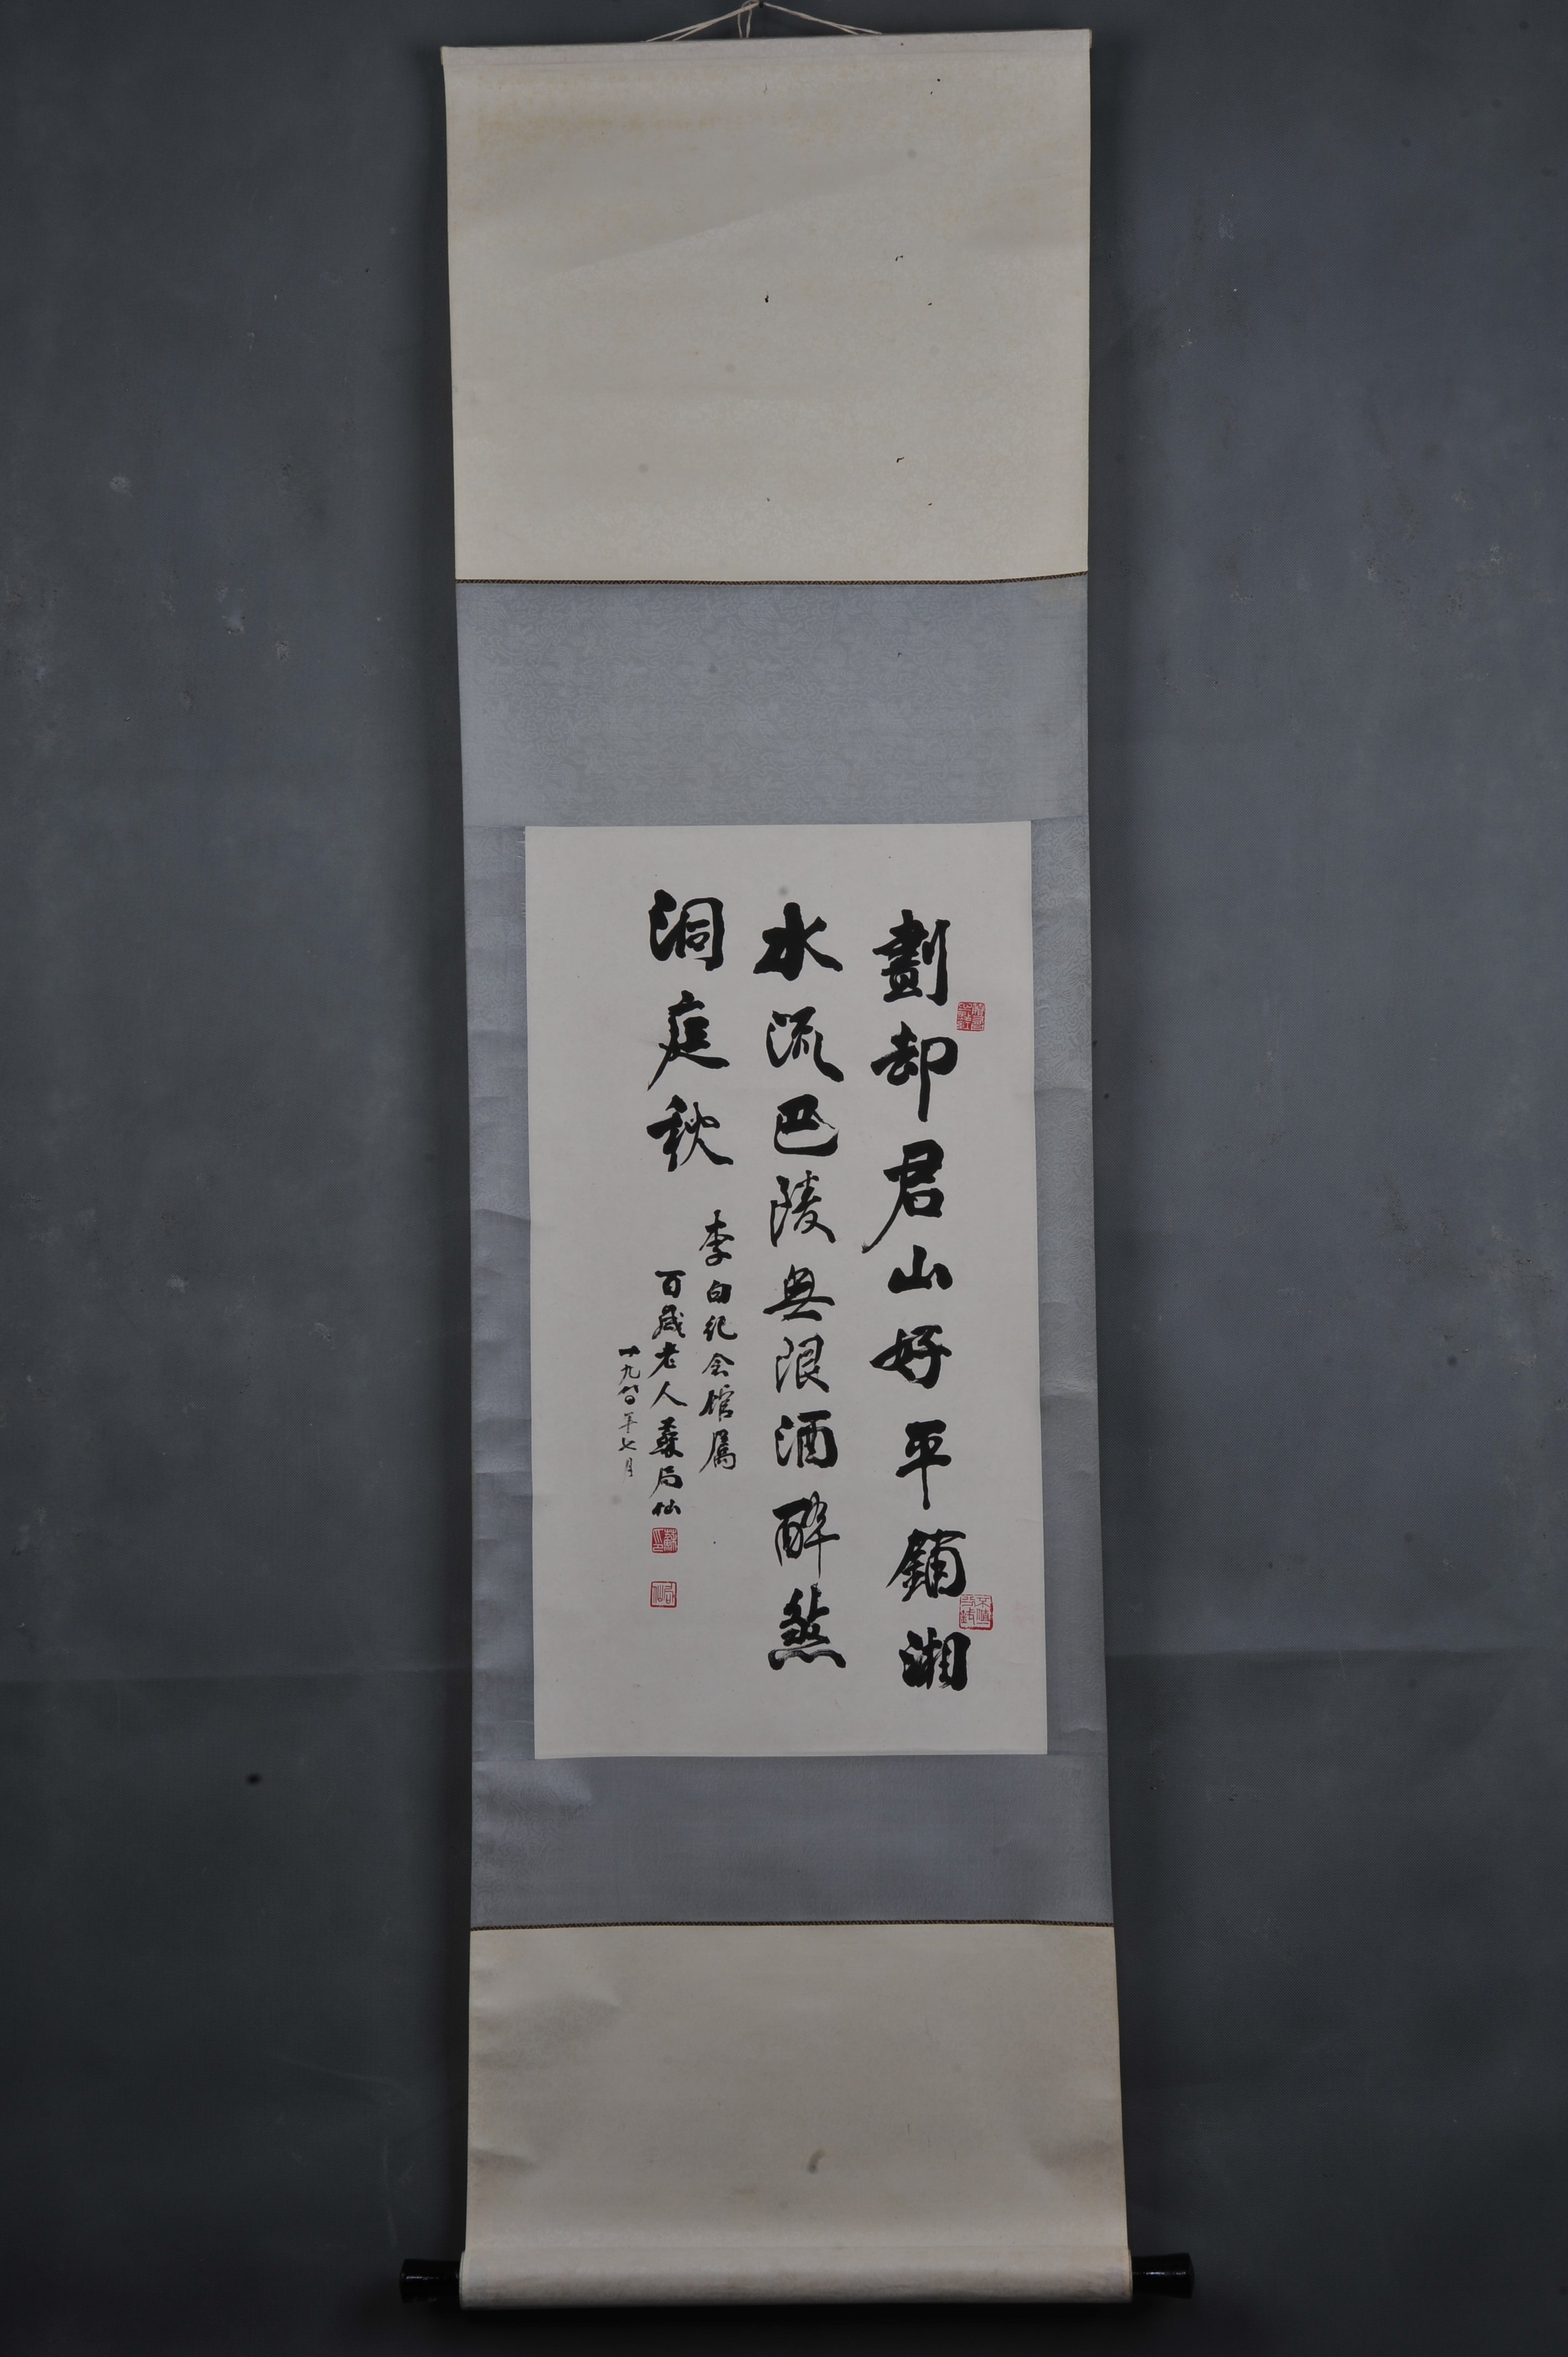 劃却君山好平鋪湘
水流巴陵無限酒醉煞
洞庭秋
李白纪念馆属
百歲老人蘇局仙
一九八〇年七月